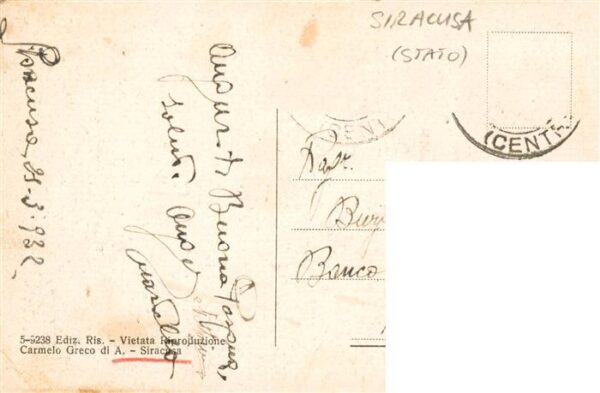 SIRACUSA
(STATO)
(CENT
(CENTR
Siracusa, 21-3-932
Auguri di Buona Pasqua,
saluti
Rag.
Banco
5-5238 Ediz. Ris. - Vietata Riproduzione
Carmelo Greco di A. - Siracusa